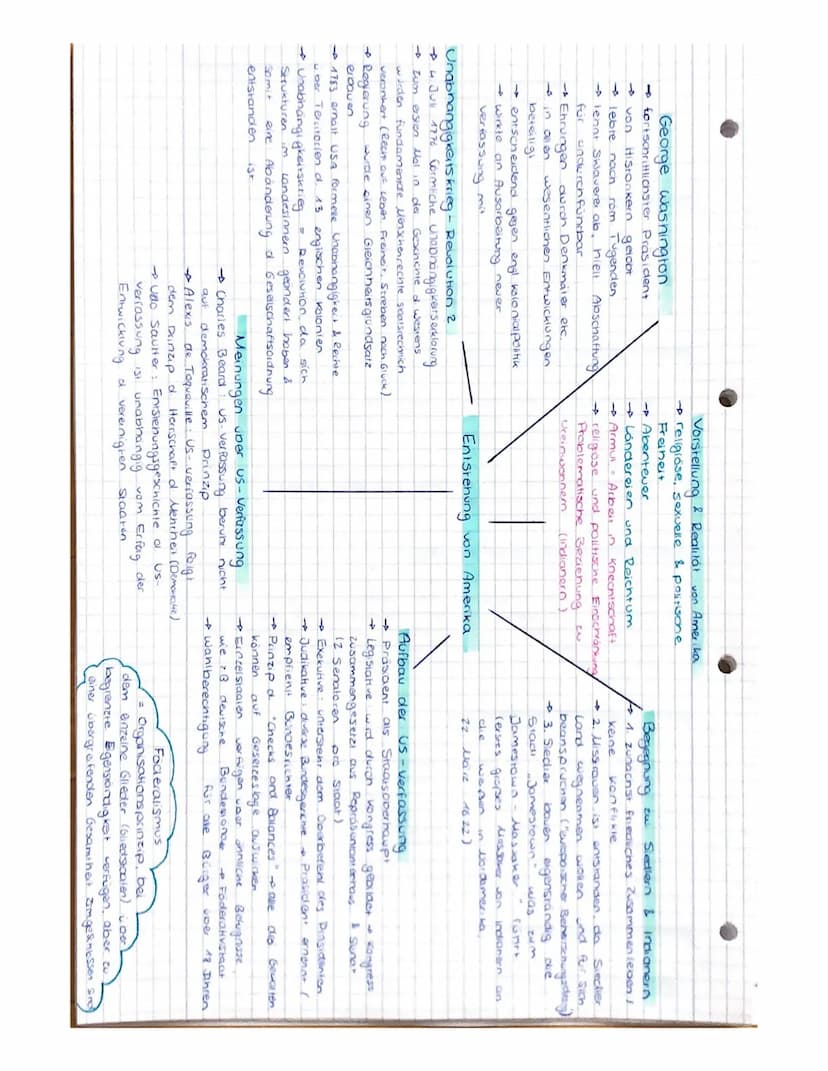 George Washington
→ fortschrittlichster Präsident
→ von Historikern gelobt
→ lebte nach röm Tugenden
→ lehnt Sklaverei ab, hielt Abschaffung
für undurchführbar
→ Ehrungen durch Denkmäler etc.
→ in allen wesentlichen Entwicklungen
beteiligt
→ entscheidend gegen engl Kolonialpolitik
→ wirkte an Ausarbeitung neuer
Verfassung mit
Vorstellung & Realität von Amerika
→ religiöse, sexuelle & politische
Freiheit
→ Abenteuer
→ Ländereien und Reichtum
→ Armut = Arbeit in Knechtschaft
→ religiöse und politische Einschränkung
Problematische Beziehung zu
Ureinwohnern (Indianern)
Begegnung zw Siedlern & Indianern
→ 1. zunächst friedliches Zusammenleben /
keine Konflikte
→ 2. Misstrauen ist entstanden, da Siedler
Land wegnehmen wollen und für sich
beanspruchen (europäischer Beherrschungsdrang)
→ 3. Siedler bauen eigenständig die
Stadt "Jamestown" was zum
Jamestown-Massaker führt
(erstes großes Massaker von Indianern an
die Weißen in Nordamerika,
22 März 1622)
Entstehung von Amerika
Unabhängigkeitskrieg - Revolution?
→ 4 Juli 1776 förmliche Unabhängigkeitserklärung
→ zum ersten Mal in der Geschichte d Westens
wurden fundamentale Menschenrechte staatsrechtlich
verankert (Recht auf Leben, Freiheit, Streben nach Glück)
→ Regierung wurde einen Gleichheitsgrundsatz
erbauen
→ 1783 erhält USA formelle Unabhängigkeit & Rechte
über Territorien d. 13 englischen Kolonien
→ Unabhängigkeitskrieg = Revolution, da sich
Strukturen im Landesinnern geändert haben &
somit eine Abänderung d Gesellschaftsordnung
entstanden ist
Meinungen über US-Verfassung
→ Charles Beard: US Verfassung beruht nicht
auf demokratischem Prinzip
→ Alexis de Toqueville: US-Verfassung folgt
dem Prinzip d Herrschaft d Mehrheit (Demokratie)
→ Udo Sautter: Entstehungsgeschichte d US-
Verfassung ist unabhängig vom Erfolg der
Entwicklung d vereinigten Staaten
Aufbau der US-Verfassung
→ Präsident als Staatsoberhaupt
→ Legislative wird durch Kongress gebildet → Kongress
zusammengesetzt aus Repräsentantenhaus & Senat
(2 Senatoren pro Staat)
→ Exekutive: untersteht dem Oberbefehl des Präsidenten
→ Judikative: diverse Bundesgerichte → Präsident ernennt /
empfiehlt Bundesrichter
→ Prinzip d "Checks and Balances" → alle die Gewalten
können auf Gesetzeslage auswirken
→ Einzelstaaten verfügen über ähnliche Befugnisse,
wie z.B deutsche Bundesländer → Föderativstaat
→ Wahlberechtigung für alle Bürger über 18 Jahren
Föderalismus
= Organisationsprinzip, bei
dem einzelne Glieder (Gliedstaaten) über
begrenzte Eigenständigkeit verfügen, aber zu
einer übergreifenden Gesamtheit zsmgeschlossen sind